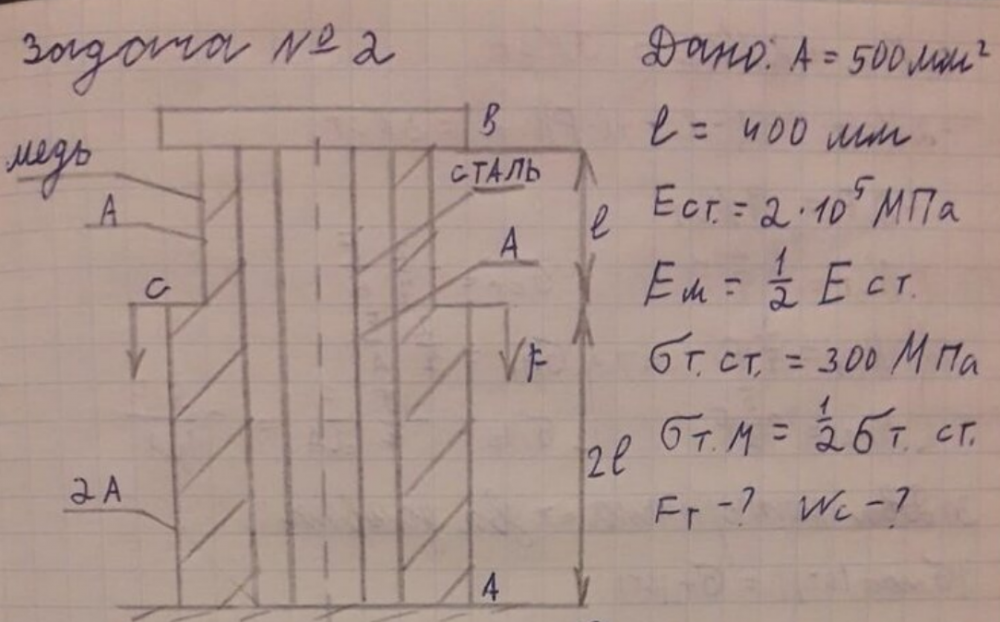 Задача № 2
Дано: A = 500 мм²
l = 400 мм
Eст. = 2·10⁵ МПа
Eм = 1/2 E ст.
σт. ст. = 300 МПа
σт. м = 1/2 σт. ст.
Fт -? Wc -?
B
медь
сталь
A
A
l
C
F
2l
2A
A